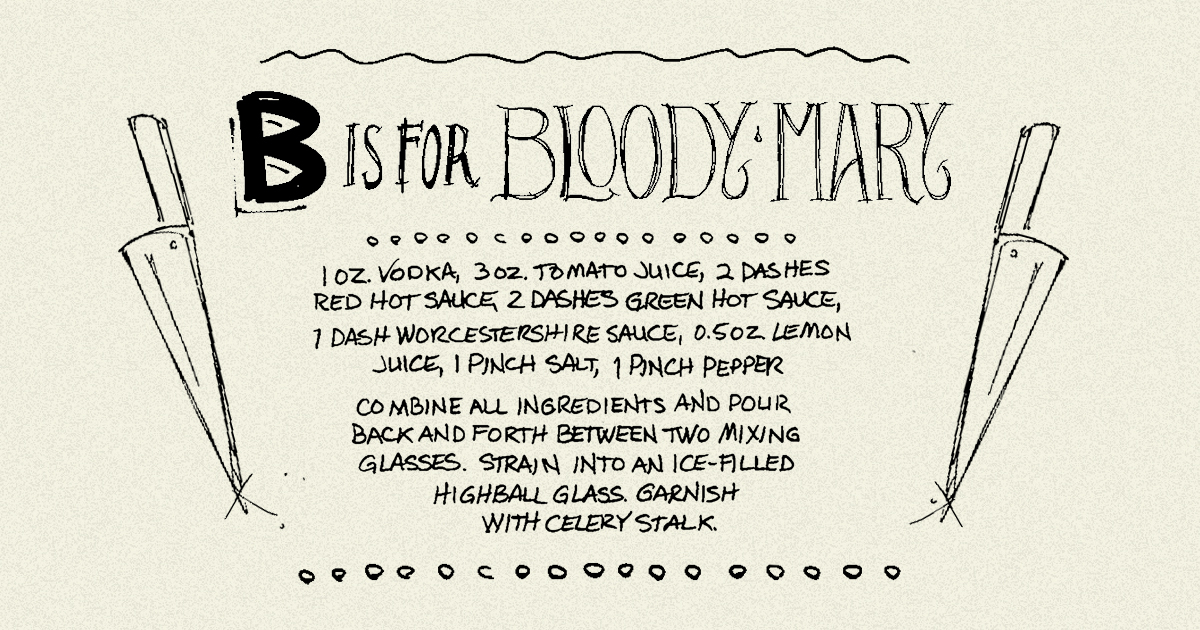 B IS FOR BLOODY MARY
1 OZ. VODKA, 3 OZ. TOMATO JUICE, 2 DASHES
RED HOT SAUCE, 2 DASHES GREEN HOT SAUCE,
1 DASH WORCESTERSHIRE SAUCE, 0.5 OZ LEMON
JUICE, 1 PINCH SALT, 1 PINCH PEPPER
COMBINE ALL INGREDIENTS AND POUR
BACK AND FORTH BETWEEN TWO MIXING
GLASSES. STRAIN INTO AN ICE-FILLED
HIGHBALL GLASS. GARNISH
WITH CELERY STALK.